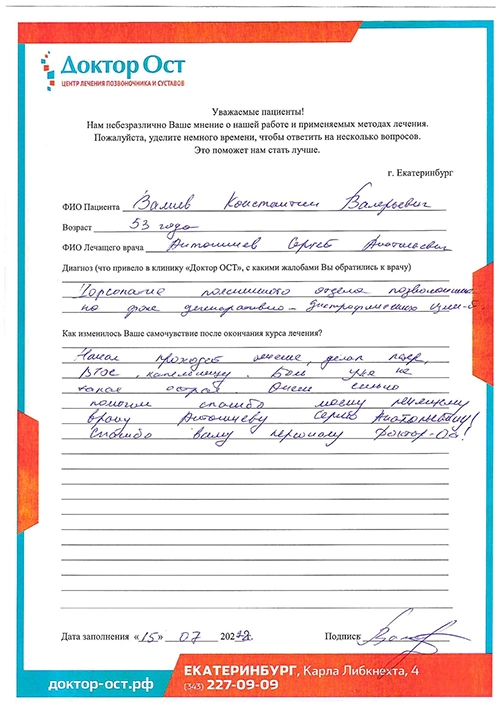 Доктор Ост
ЦЕНТР ЛЕЧЕНИЯ ПОЗВОНОЧНИКА И СУСТАВОВ
Уважаемые пациенты!
Нам небезразлично Ваше мнение о нашей работе и применяемых методах лечения.
Пожалуйста, уделите немного времени, чтобы ответить на несколько вопросов.
Это поможет нам стать лучше.
г. Екатеринбург
ФИО Пациента Валиев Константин Валерьевич
Возраст 53 года
ФИО Лечащего врача Сергей Анатольевич
Диагноз (что привело в клинику «Доктор ОСТ», с какими жалобами Вы обратились к врачу)
Торсопатие поясничного отдела позвоночника
на фоне дегенеративно - дистрофических
Как изменилось Ваше самочувствие после окончания курса лечения?
Начал проходить лечение, делал
капельницу. Боли уже не
такая острая Очень сильно
помогли спасибо моему лечащему
врачу Сергею Анатольевичу!
Спасибо вашему персоналу Доктор-Ост!
Дата заполнения «15» 07 202
Подпись
ЕКАТЕРИНБУРГ, Карла Либкнехта, 4
доктор-ост.рф (343) 227-09-09